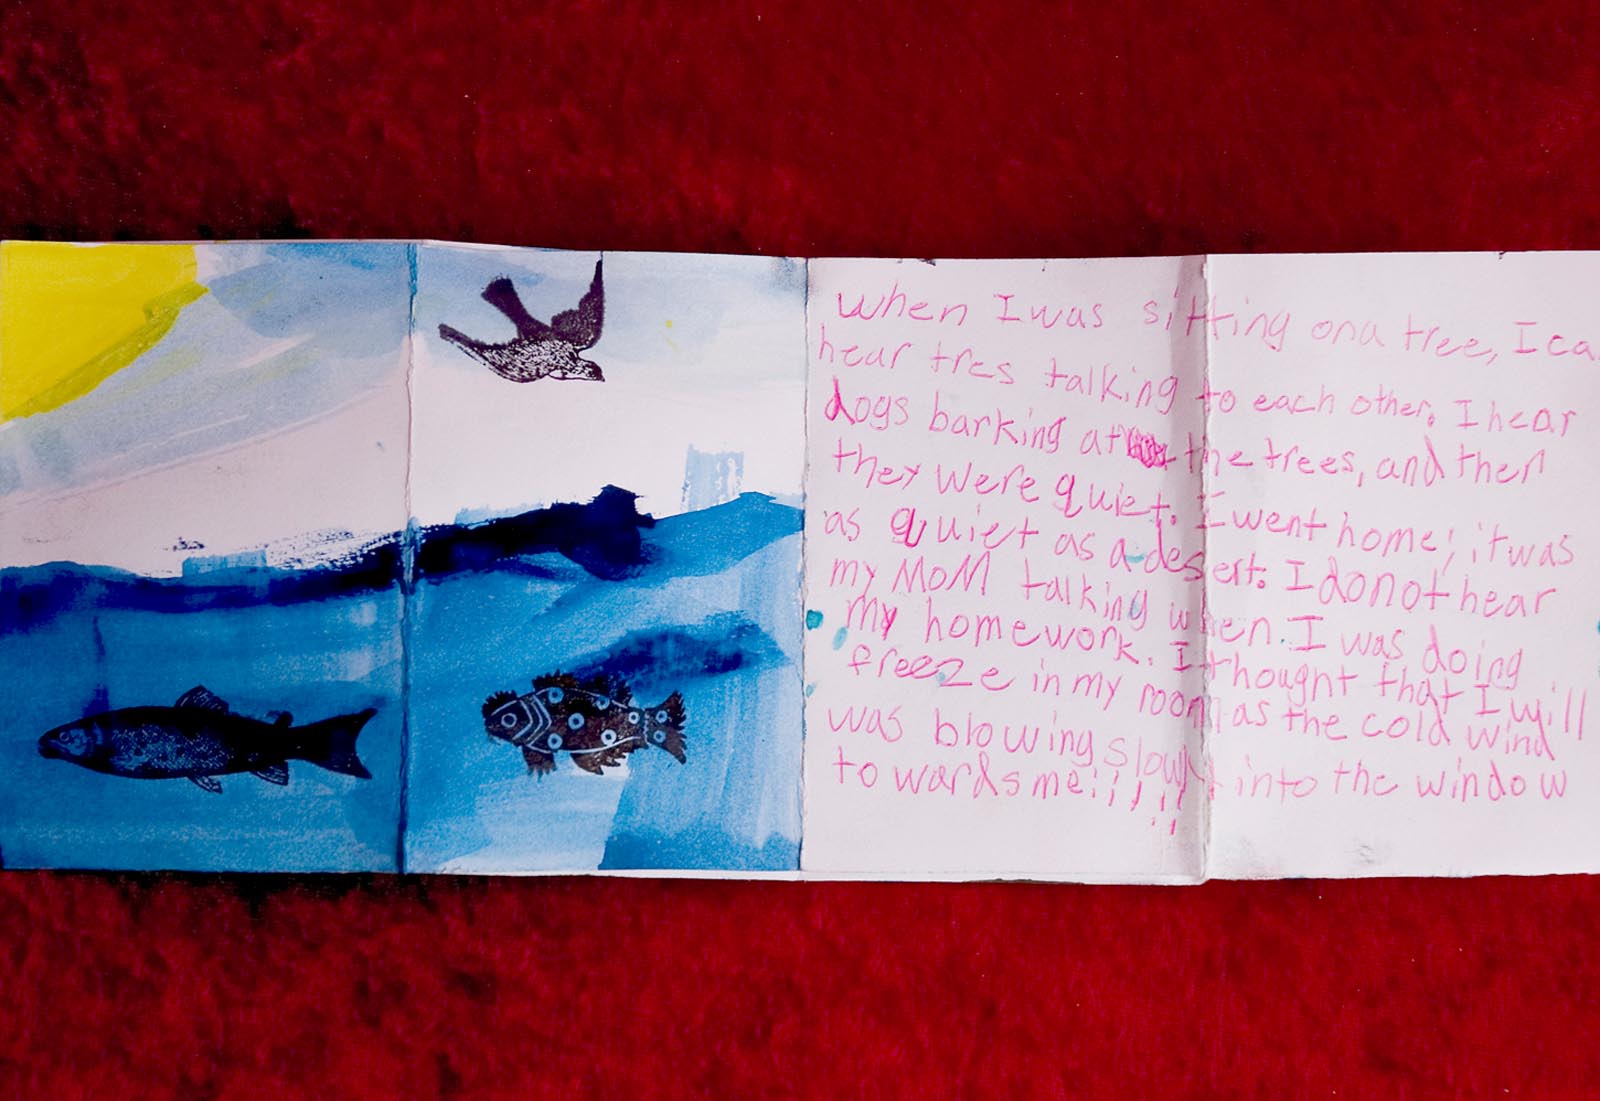 when I was sitting on a tree, I ca
hear tres talking to each other. I hear
dogs barking at the trees, and then
they were quiet. I went home; it was
as quiet as a desert. I do not hear
my MoM talking when I was doing
my homework. I thought that I will
freeze in my room as the cold wind
was blowing slowly into the window
to wards me!!!!!